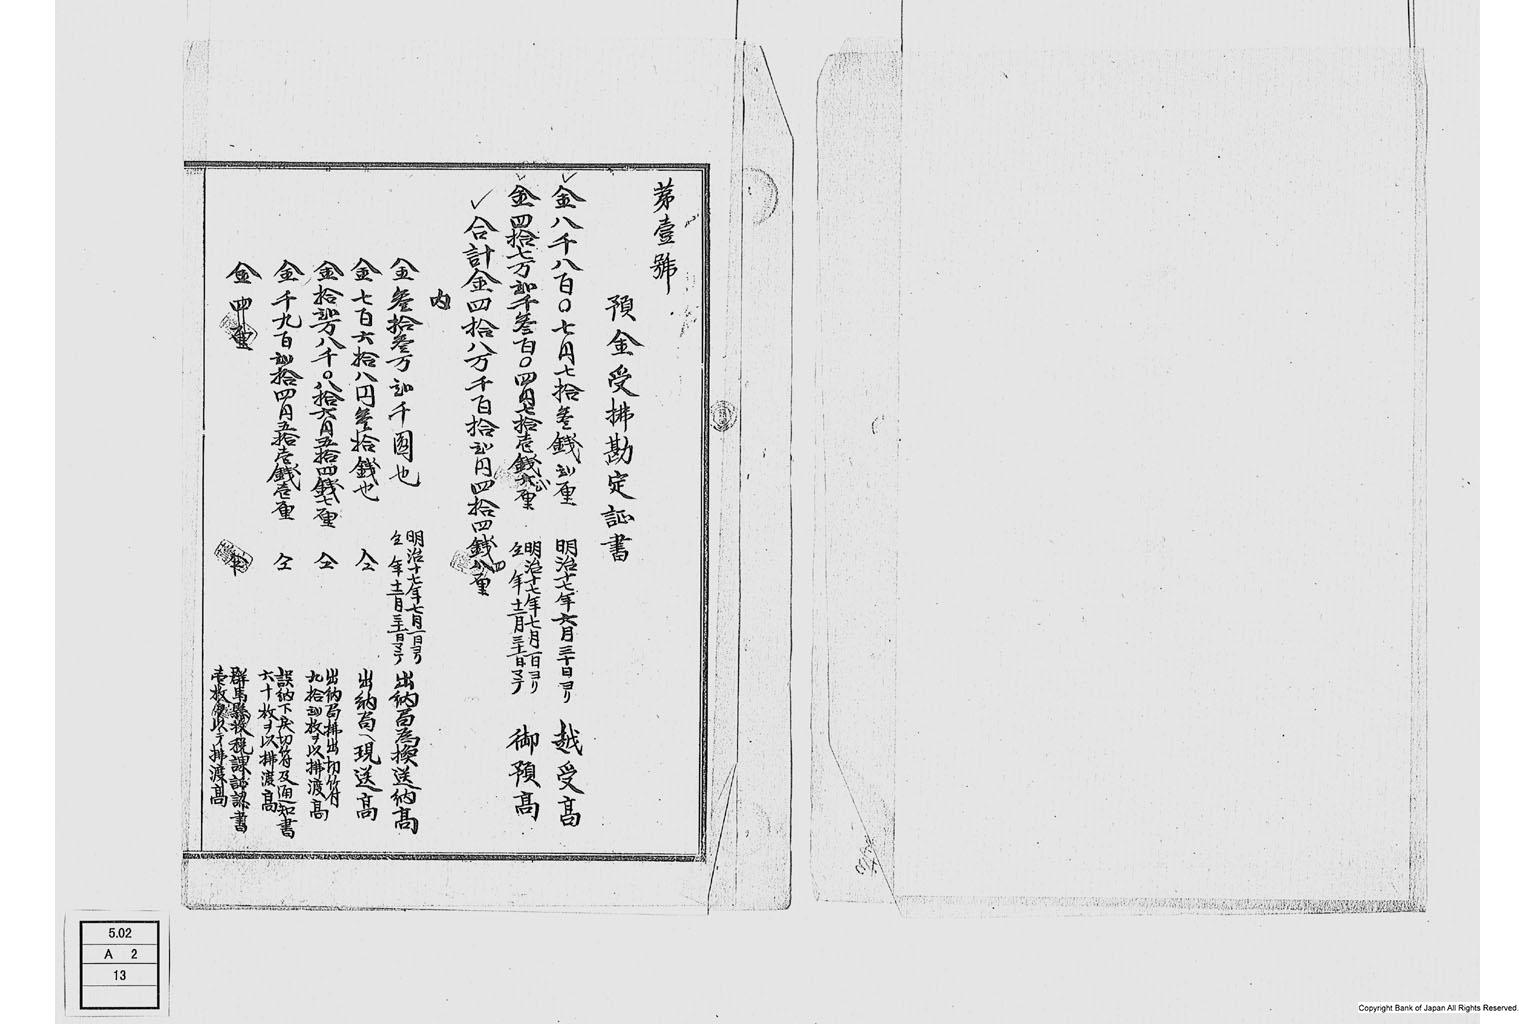 第壹號
預金受拂勘定証書
金八千八百〇七円七拾叄銭弐厘 明治十七年六月三十日ヨリ 越受高
金四拾七万弐千叄百〇四円七拾壱銭六厘 明治十七年七月一日ヨリ仝年十二月三十一日マテ 御預高
合計金四拾八万千百拾弐円四拾四銭八厘
内
金叄拾叄万弐千圓也 明治十七年七月一日ヨリ仝年十二月三十一日マテ 出納局為換送納高
金七百六拾八円叄拾銭也 仝 出納局ヘ現送高
金拾弐万八千〇八拾六円五拾四銭七厘 仝 出納局拂出切符九拾弐枚ヲ以拂渡高
金千九百弐拾四円五拾壱銭壱厘 仝 誤納下戻切符及通知書六十枚ヲ以拂渡高
金四厘 群馬縣税課証認書壱枚ヲ以テ拂渡高
5.02
A 2
13
Copyright Bank of Japan All Rights Reserved.